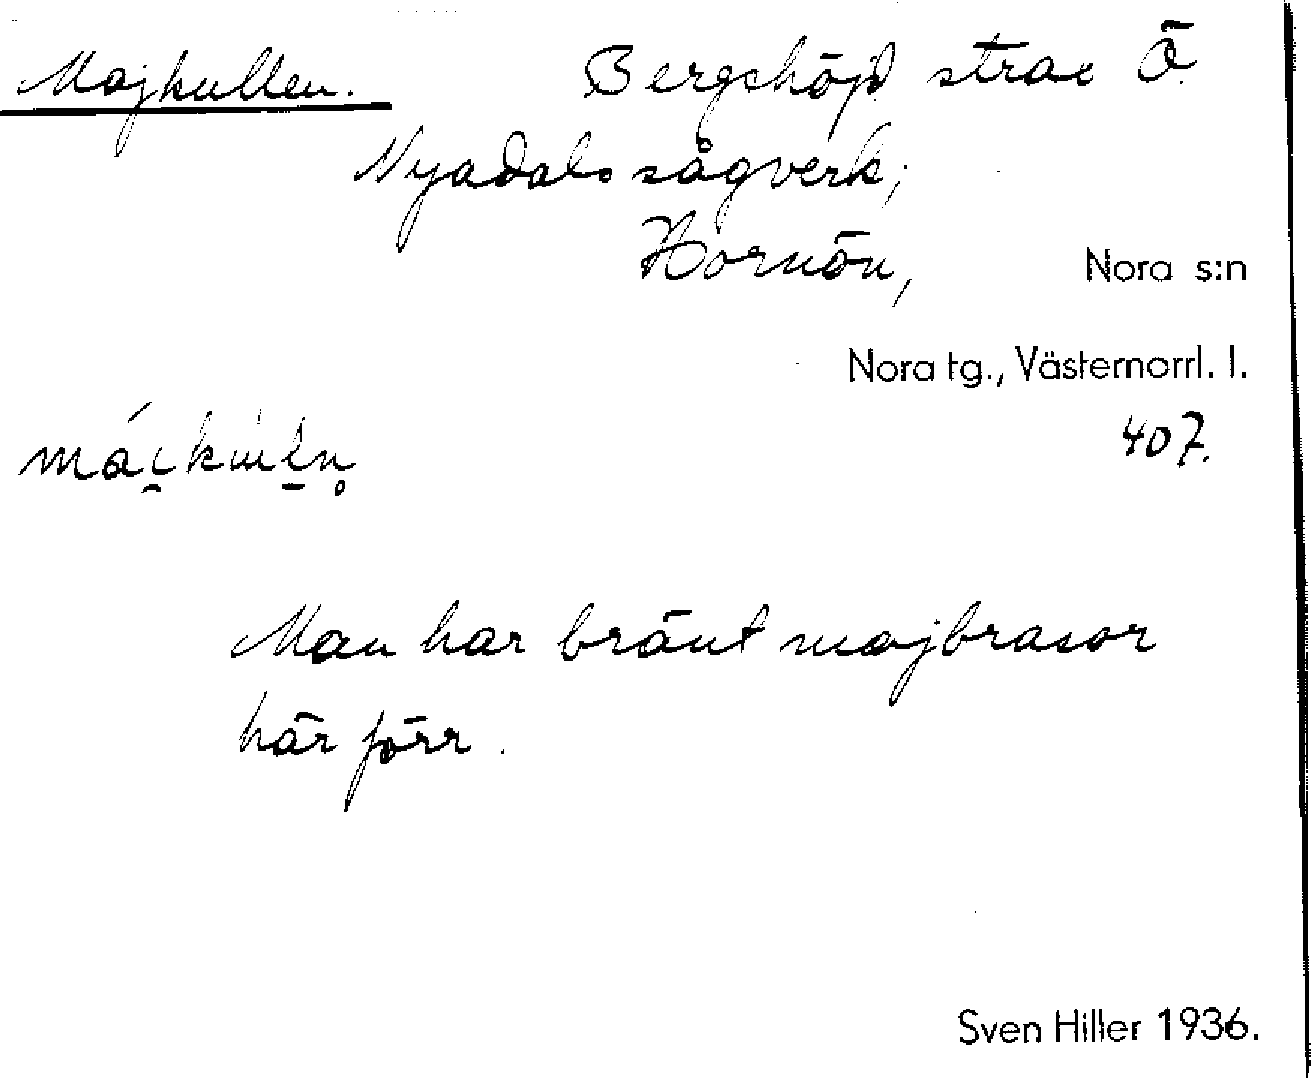 Majkullen. Bergshöjd strax Ö.
Nyadals sågverk,
Hornön, Nora s:n
Nora tg., Västernorrl. l.
407.
Man har bränt majbrasor
här förr.
Sven Hiller 1936.